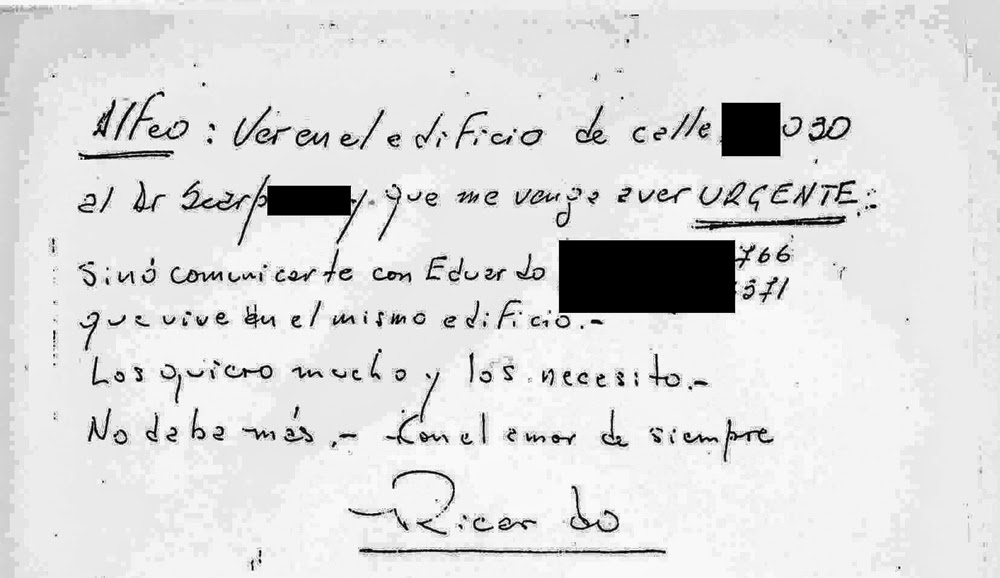 Alfeo: Ver en el edificio de calle 030
al Dr Scarp y. que me venga a ver URGENTE.
Sinó comunicarte con Eduardo 766
371
que vive en el mismo edificio.-
Los quiero mucho y los necesito.-
No daba más.- Con el amor de siempre
Ricardo